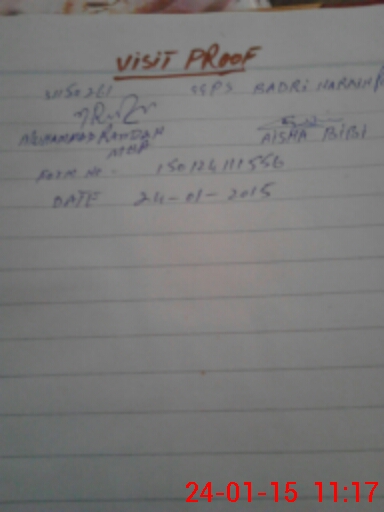 VISIT PROOF
V150261 SSPS BADRI NARAIN
MOHAMMAD RAMDAN AISHA BIBI
MBA
FORM NO. - 150124111556
DATE 24-01-2015
24-01-15 11:17